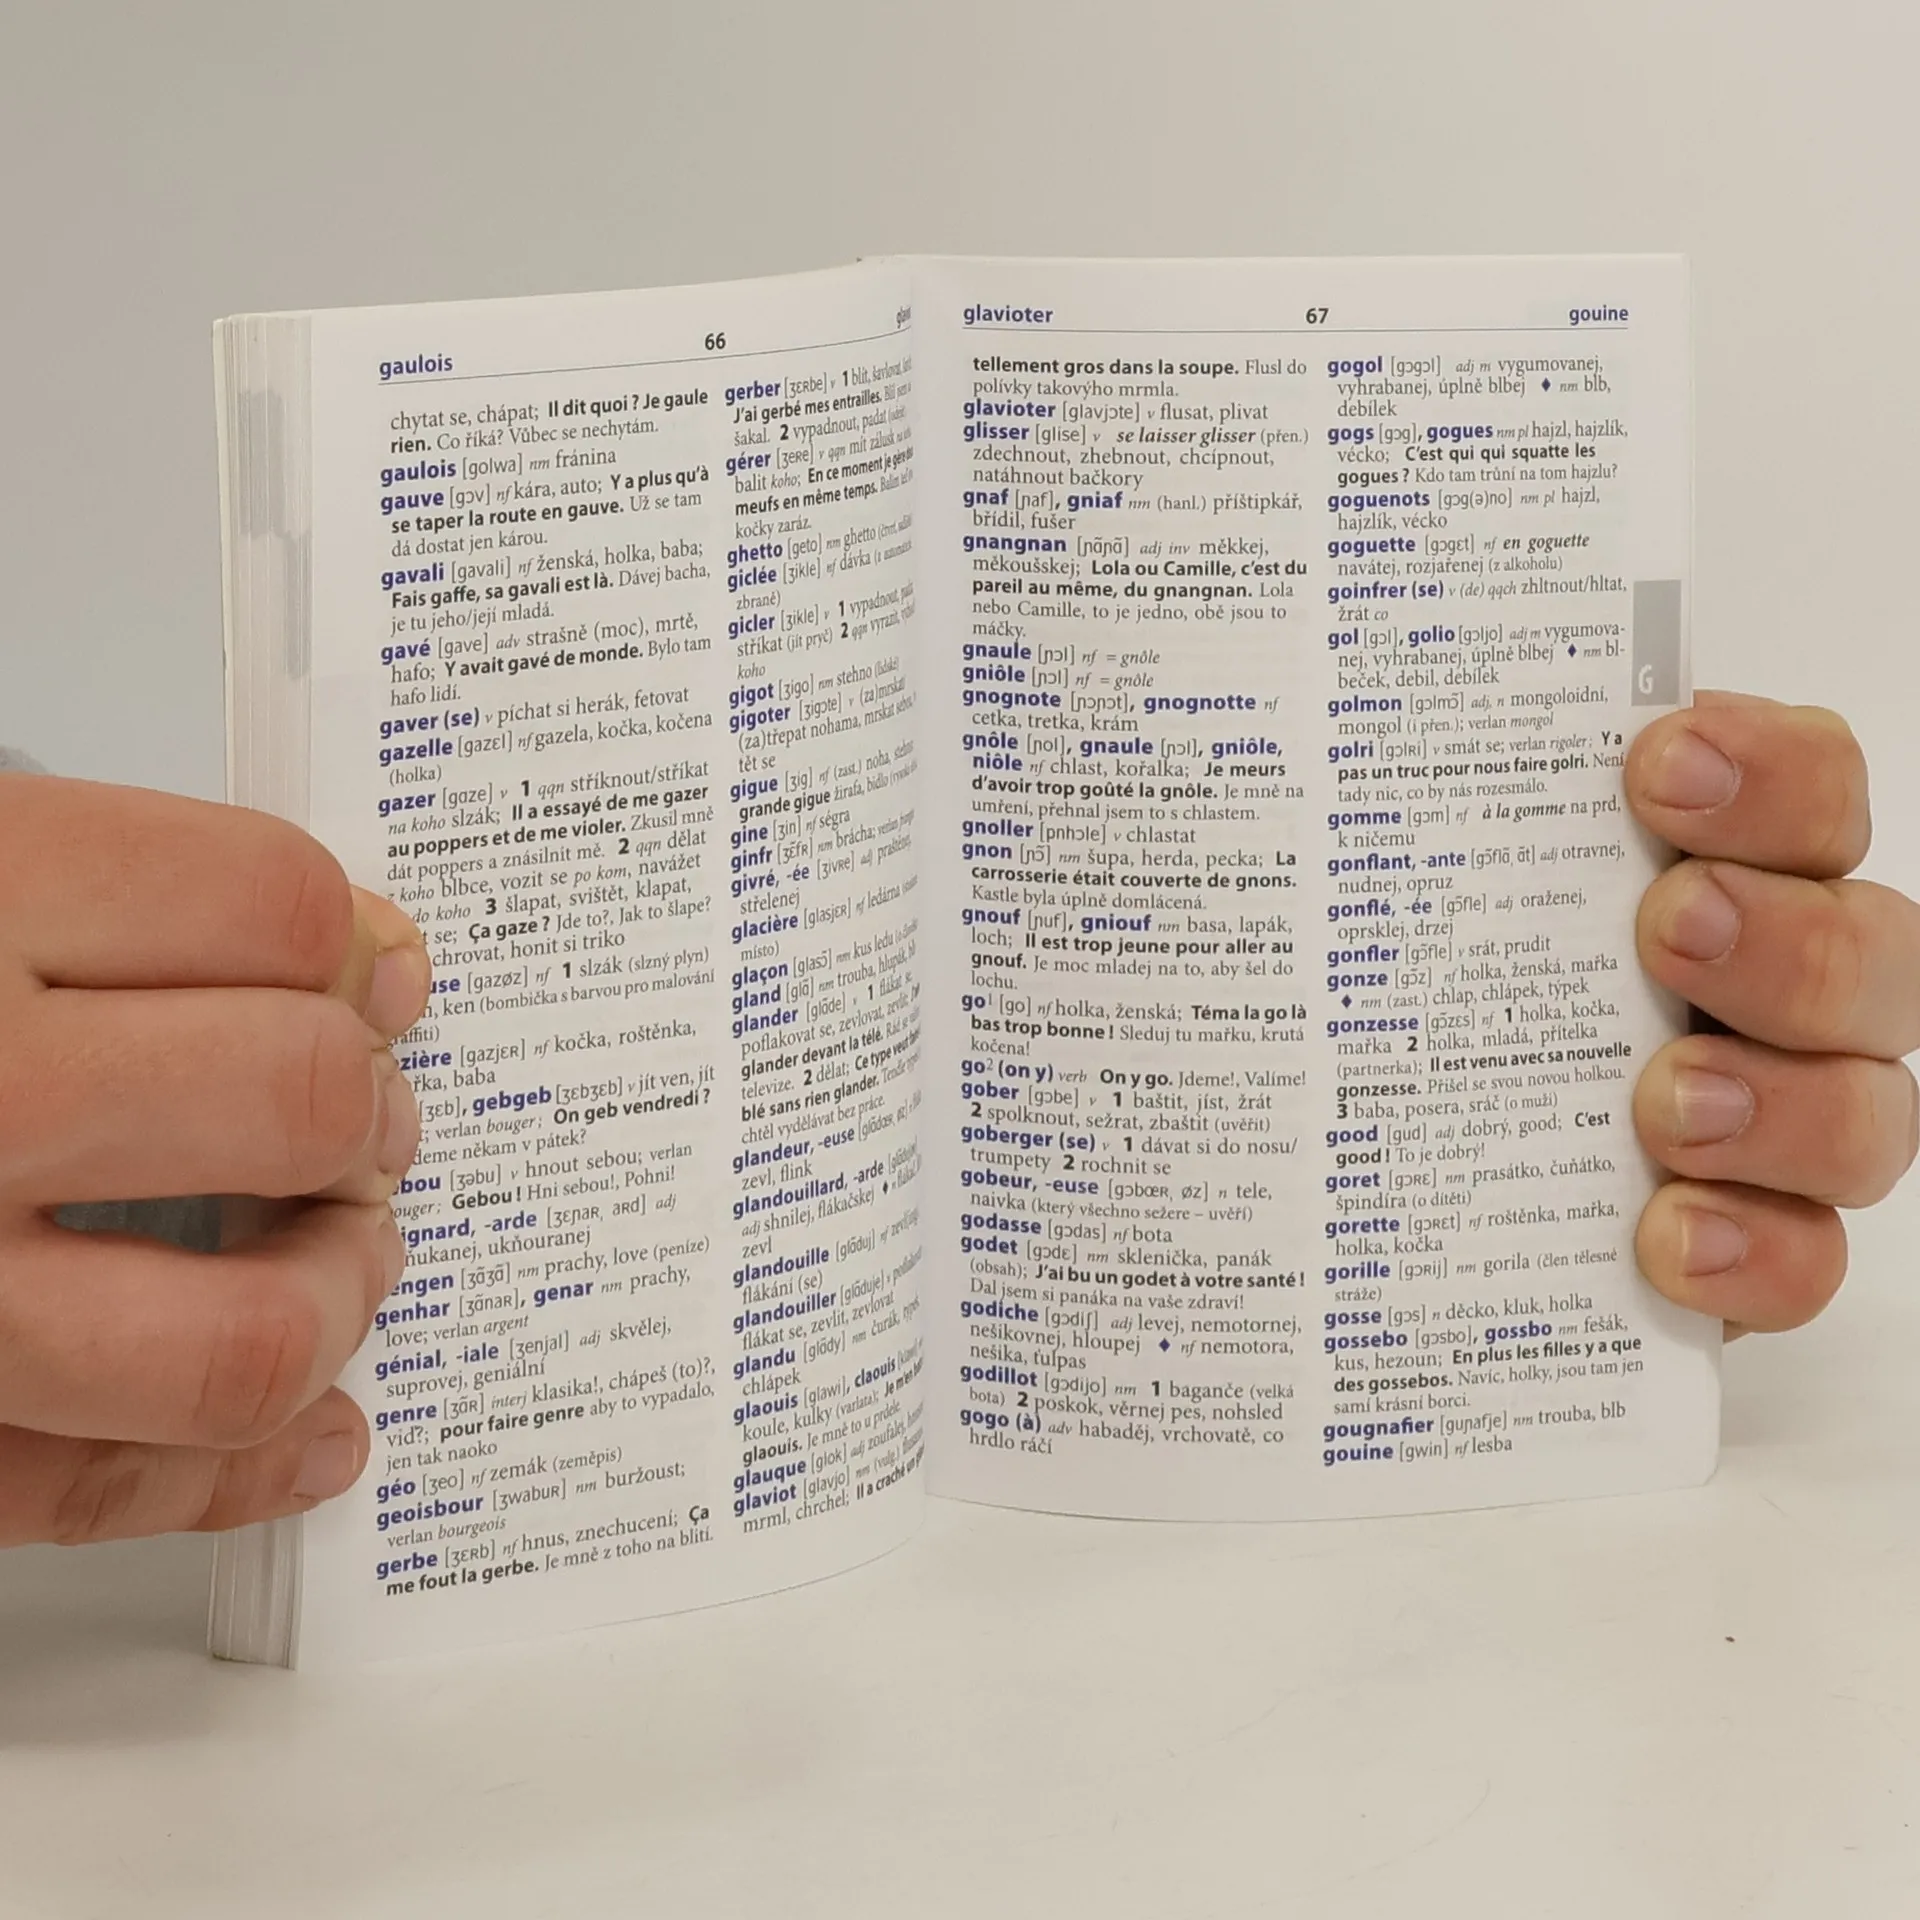 gaulois
66
chytat se, chápat; Il dit quoi ? Je gaule
rien. Co říká? Vůbec se nechytám.
gaulois [golwa] nm fránina
gauve [gɔv] nf kára, auto; Y a plus qu'à
se taper la route en gauve. Už se tam
dá dostat jen károu.
gavali [gavali] nf ženská, holka, baba;
Fais gaffe, sa gavali est là. Dávej bacha,
je tu jeho/její mladá.
gavé [gave] adv strašně (moc), mrtě,
hafo; Y avait gavé de monde. Bylo tam
hafo lidí.
gaver (se) v píchat si herák, fetovat
gazelle [gazɛl] nf gazela, kočka, kočena
(holka)
gazer [gɑze] v 1 qqn stříknout/stříkat
na koho slzák; Il a essayé de me gazer
au poppers et de me violer. Zkusil mně
dát poppers a znásilnit mě. 2 qqn dělat
z koho blbce, vozit se po kom, navážet
do koho 3 šlapat, svištět, klapat,
se; Ça gaze ? Jde to?, Jak to šlape?
chrovat, honit si triko
use [gazøz] nf 1 slzák (slzný plyn)
ken (bombička s barvou pro malování
raffiti)
zière [gazjɛʀ] nf kočka, roštěnka,
řka, baba
[ʒɛb], gebgeb [ʒɛbʒɛb] v jít ven, jít
; verlan bouger; On geb vendredi ?
deme někam v pátek?
bou [ʒəbu] v hnout sebou; verlan
ouger; Gebou ! Hni sebou!, Pohni!
ignard, -arde [ʒɛɲaʀ, aʀd] adj
ňukanej, ukňouranej
engen [ʒɑ̃ʒɑ̃] nm prachy, love (peníze)
genhar [ʒɑ̃naʀ], genar nm prachy,
love; verlan argent
génial, -iale [ʒenjal] adj skvělej,
suprovej, geniální
genre [ʒɑ̃ʀ] interj klasika!, chápeš (to)?,
viď?; pour faire genre aby to vypadalo,
jen tak naoko
géo [ʒeo] nf zemák (zeměpis)
geoisbour [ʒwabuʀ] nm buržoust;
verlan bourgeois
gerbe [ʒɛʀb] nf hnus, znechucení; Ça
me fout la gerbe. Je mně z toho na blití.
gerber [ʒɛʀbe] v 1 blít, šavlovat,
J'ai gerbé mes entrailles.
šakal. 2 vypadnout, padat
gérer [ʒeʀe] v qqn mít zálusk na
balit koho; En ce moment je gère
meufs en même temps. Balím teď
kočky zaráz.
ghetto [geto] nm ghetto
giclée [ʒikle] nf dávka (z automatické
zbraně)
gicler [ʒikle] v 1 vypadnout,
stříkat (jít pryč) 2 qqn vyrazit,
koho
gigot [ʒigo] nm stehno (lidské)
gigoter [ʒigɔte] v (za)mrskat
(za)třepat nohama, mrskat sebou,
tět se
gigue [ʒig] nf (zast.) noha, stehno
grande gigue žirafa, bidlo
gine [ʒin] nf ségra
ginfr [ʒɛ̃fʀ] nm brácha; verlan
givré, -ée [ʒivʀe] adj praštěnej,
střelenej
glacière [glasjɛʀ] nf ledárna
místo)
glaçon [glasɔ̃] nm kus ledu
gland [glɑ̃] nm trouba, hlupák,
glander [glɑ̃de] v 1 flákat se,
poflakovat se, zevlovat, zevlit;
glander devant la télé. Rád se
televize. 2 dělat; Ce type veut
blé sans rien glander. Tenhle
chtěl vydělávat bez práce.
glandeur, -euse [glɑ̃dœʀ, øz] n
zevl, flink
glandouillard, -arde
adj shnilej, flákačskej ♦ n
zevl
glandouille [glɑ̃duj] nf
flákání (se)
glandouiller [glɑ̃duje] v
flákat se, zevlit, zevlovat
glandu [glɑ̃dy] nm čurák, týpek
chlápek
glaouis [glawi], claouis
koule, kulky (varlata);
glaouis. Je mně to u prdele.
glauque [glok] adj zoufalej,
glaviot [glavjo] nm (vulg.)
mrml, chrchel; Il a craché un
glavioter
67
gouine
tellement gros dans la soupe. Flusl do
polívky takovýho mrmla.
glavioter [glavjɔte] v flusat, plivat
glisser [glise] v se laisser glisser (přen.)
zdechnout, zhebnout, chcípnout,
natáhnout bačkory
gnaf [ɲaf], gniaf nm (hanl.) příštipkář,
břídil, fušer
gnangnan [ɲɑ̃ɲɑ̃] adj inv měkkej,
měkoušskej; Lola ou Camille, c'est du
pareil au même, du gnangnan. Lola
nebo Camille, to je jedno, obě jsou to
máčky.
gnaule [ɲɔl] nf = gnôle
gniôle [ɲɔl] nf = gnôle
gnognote [ɲɔɲɔt], gnognotte nf
cetka, tretka, krám
gnôle [ɲol], gnaule [ɲɔl], gniôle,
niôle nf chlast, kořalka; Je meurs
d'avoir trop goûté la gnôle. Je mně na
umření, přehnal jsem to s chlastem.
gnoller [pnhɔle] v chlastat
gnon [ɲɔ̃] nm šupa, herda, pecka; La
carrosserie était couverte de gnons.
Kastle byla úplně domlácená.
gnouf [ɲuf], gniouf nm basa, lapák,
loch; Il est trop jeune pour aller au
gnouf. Je moc mladej na to, aby šel do
lochu.
go¹ [go] nf holka, ženská; Téma la go là
bas trop bonne ! Sleduj tu mařku, krutá
kočena!
go² (on y) verb On y go. Jdeme!, Valíme!
gober [gɔbe] v 1 baštit, jíst, žrát
2 spolknout, sežrat, zbaštit (uvěřit)
goberger (se) v 1 dávat si do nosu/
trumpety 2 rochnit se
gobeur, -euse [gɔbœʀ, øz] n tele,
naivka (který všechno sežere – uvěří)
godasse [gɔdas] nf bota
godet [gɔdɛ] nm sklenička, panák
(obsah); J'ai bu un godet à votre santé !
Dal jsem si panáka na vaše zdraví!
godiche [gɔdiʃ] adj levej, nemotornej,
nešikovnej, hloupej ♦ nf nemotora,
nešika, ťulpas
godillot [gɔdijo] nm 1 baganče (velká
bota) 2 poskok, věrnej pes, nohsled
gogo (à) adv habaděj, vrchovatě, co
hrdlo ráčí
gogol [gɔgɔl] adj m vygumovanej,
vyhrabanej, úplně blbej ♦ nm blb,
debílek
gogs [gɔg], gogues nm pl hajzl, hajzlík,
vécko; C'est qui qui squatte les
gogues ? Kdo tam trůní na tom hajzlu?
goguenots [gɔg(ə)no] nm pl hajzl,
hajzlík, vécko
goguette [gɔgɛt] nf en goguette
navátej, rozjařenej (z alkoholu)
goinfrer (se) v (de) qqch zhltnout/hltat,
žrát co
gol [gɔl], golio [gɔljo] adj m vygumova-
nej, vyhrabanej, úplně blbej ♦ nm bl-
beček, debil, debílek
golmon [gɔlmɔ̃] adj, n mongoloidní,
mongol (i přen.); verlan mongol
golri [gɔlʀi] v smát se; verlan rigoler; Y a
pas un truc pour nous faire golri. Není
tady nic, co by nás rozesmálo.
gomme [gɔm] nf à la gomme na prd,
k ničemu
gonflant, -ante [gɔ̃flɑ̃, ɑ̃t] adj otravnej,
nudnej, opruz
gonflé, -ée [gɔ̃fle] adj oraženej,
oprsklej, drzej
gonfler [gɔ̃fle] v srát, prudit
gonze [gɔ̃z] nf holka, ženská, mařka
♦ nm (zast.) chlap, chlápek, týpek
gonzesse [gɔ̃zɛs] nf 1 holka, kočka,
mařka 2 holka, mladá, přítelka
(partnerka); Il est venu avec sa nouvelle
gonzesse. Přišel se svou novou holkou.
3 baba, posera, sráč (o muži)
good [gud] adj dobrý, good; C'est
good ! To je dobrý!
goret [gɔʀɛ] nm prasátko, čuňátko,
špindíra (o dítěti)
gorette [gɔʀɛt] nf roštěnka, mařka,
holka, kočka
gorille [gɔʀij] nm gorila (člen tělesné
stráže)
gosse [gɔs] n děcko, kluk, holka
gossebo [gɔsbo], gossbo nm fešák,
kus, hezoun; En plus les filles y a que
des gossebos. Navíc, holky, jsou tam jen
samí krásní borci.
gougnafier [guɲafje] nm trouba, blb
gouine [gwin] nf lesba
G